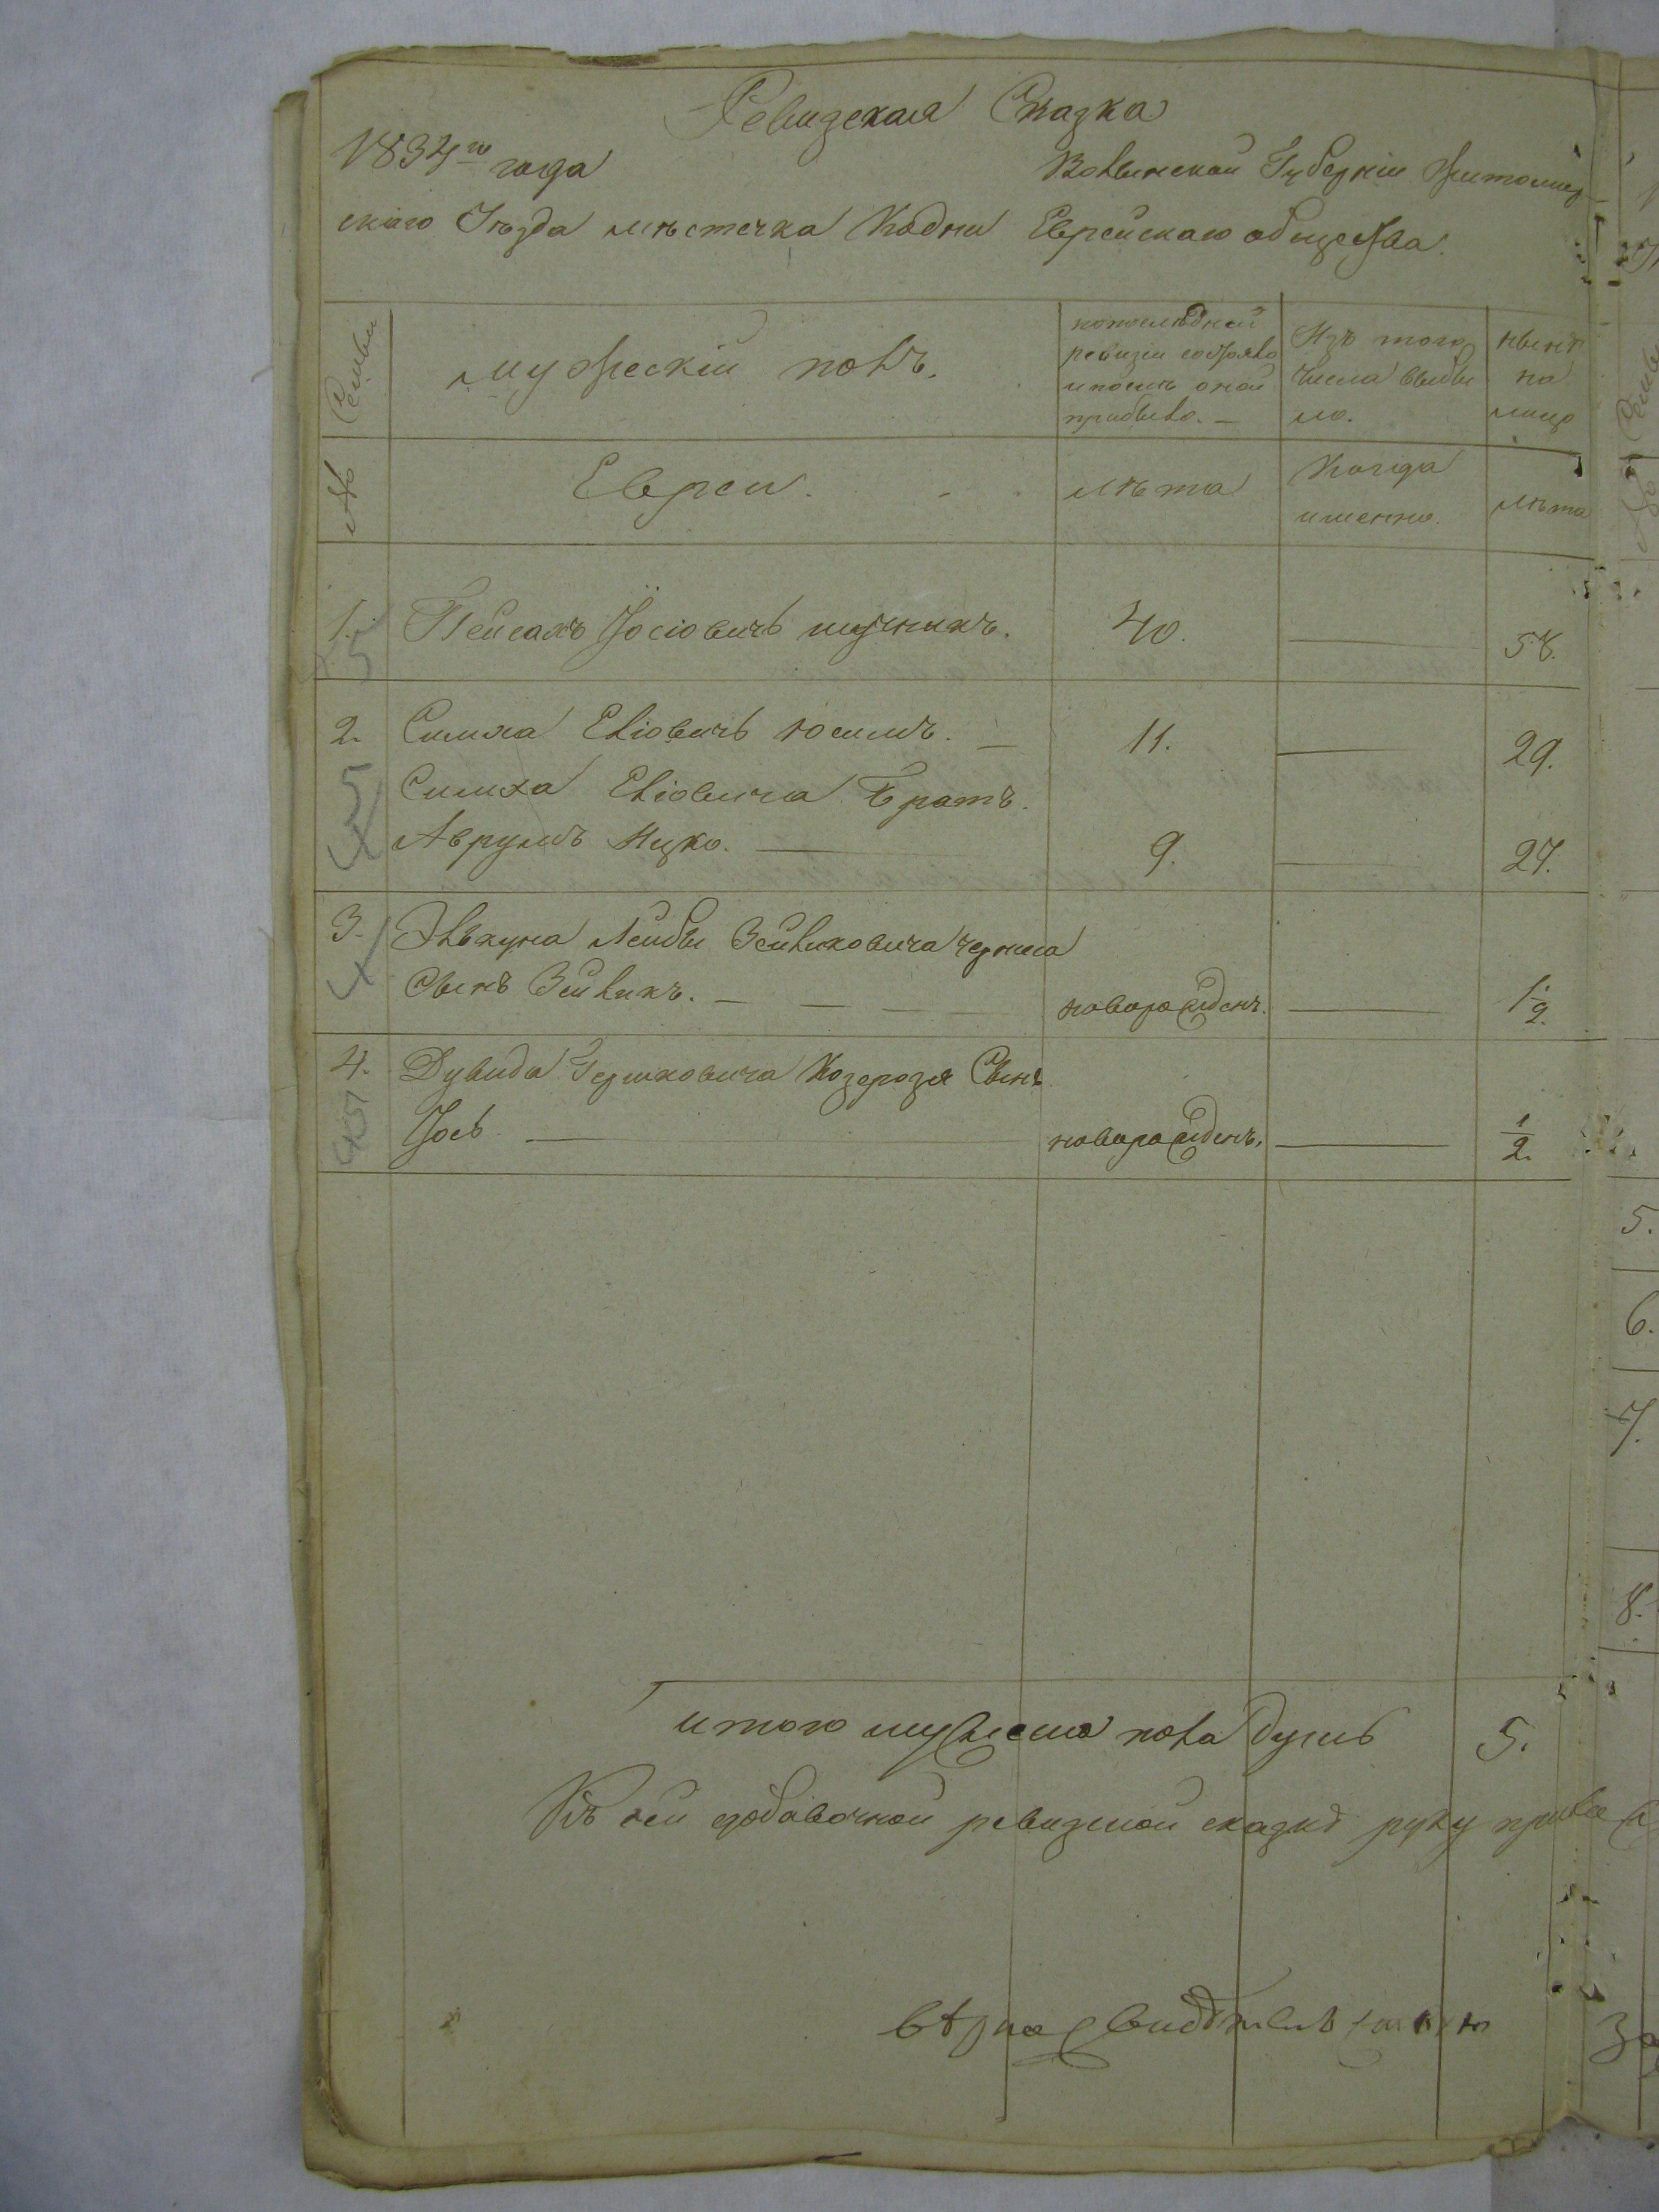 Ревизская Сказка
1834го года Волынской Губерніи Житомир
скаго Уезда мѣстечка Кодни Еврейскаго общества.
Семьи
мужескій полъ.
по последней
ревизіи состояло
и после оной
прибыло. —
Изъ того
числа выбы
ло.
ныне
на
лицо
№
Евреи.
лѣта
Когда
именно.
лѣта
1. Пейсахъ Іосіовичъ 40. — 58.
5
2. Симха Еліовичъ — 11. — 29.
5 Симха Еліовича Братъ.
Аврумъ Ицко. — 9. — 27.
3. Элькуна Лейбы Зейликовича
Сынъ Зейликъ. — новорожденъ. — 1/2.
4. Дувида Гершковича Козерозя Сынъ
Іось — новорожденъ. — 1/2.
итого мужеска пола душъ 5.
Къ сей добавочной ревизкой сказке руку
5.
6.
7.
8.